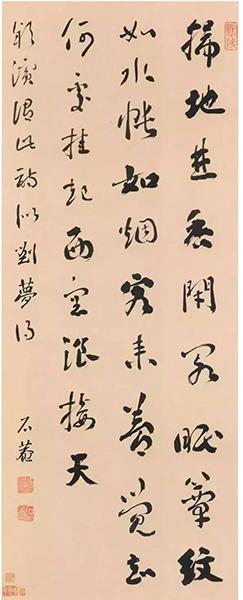 掃地焚香閉閣眠簟紋
如水帳如烟客來夢覺知
何處挂起西窗浪接天
謂此詩似劉夢得
石菴